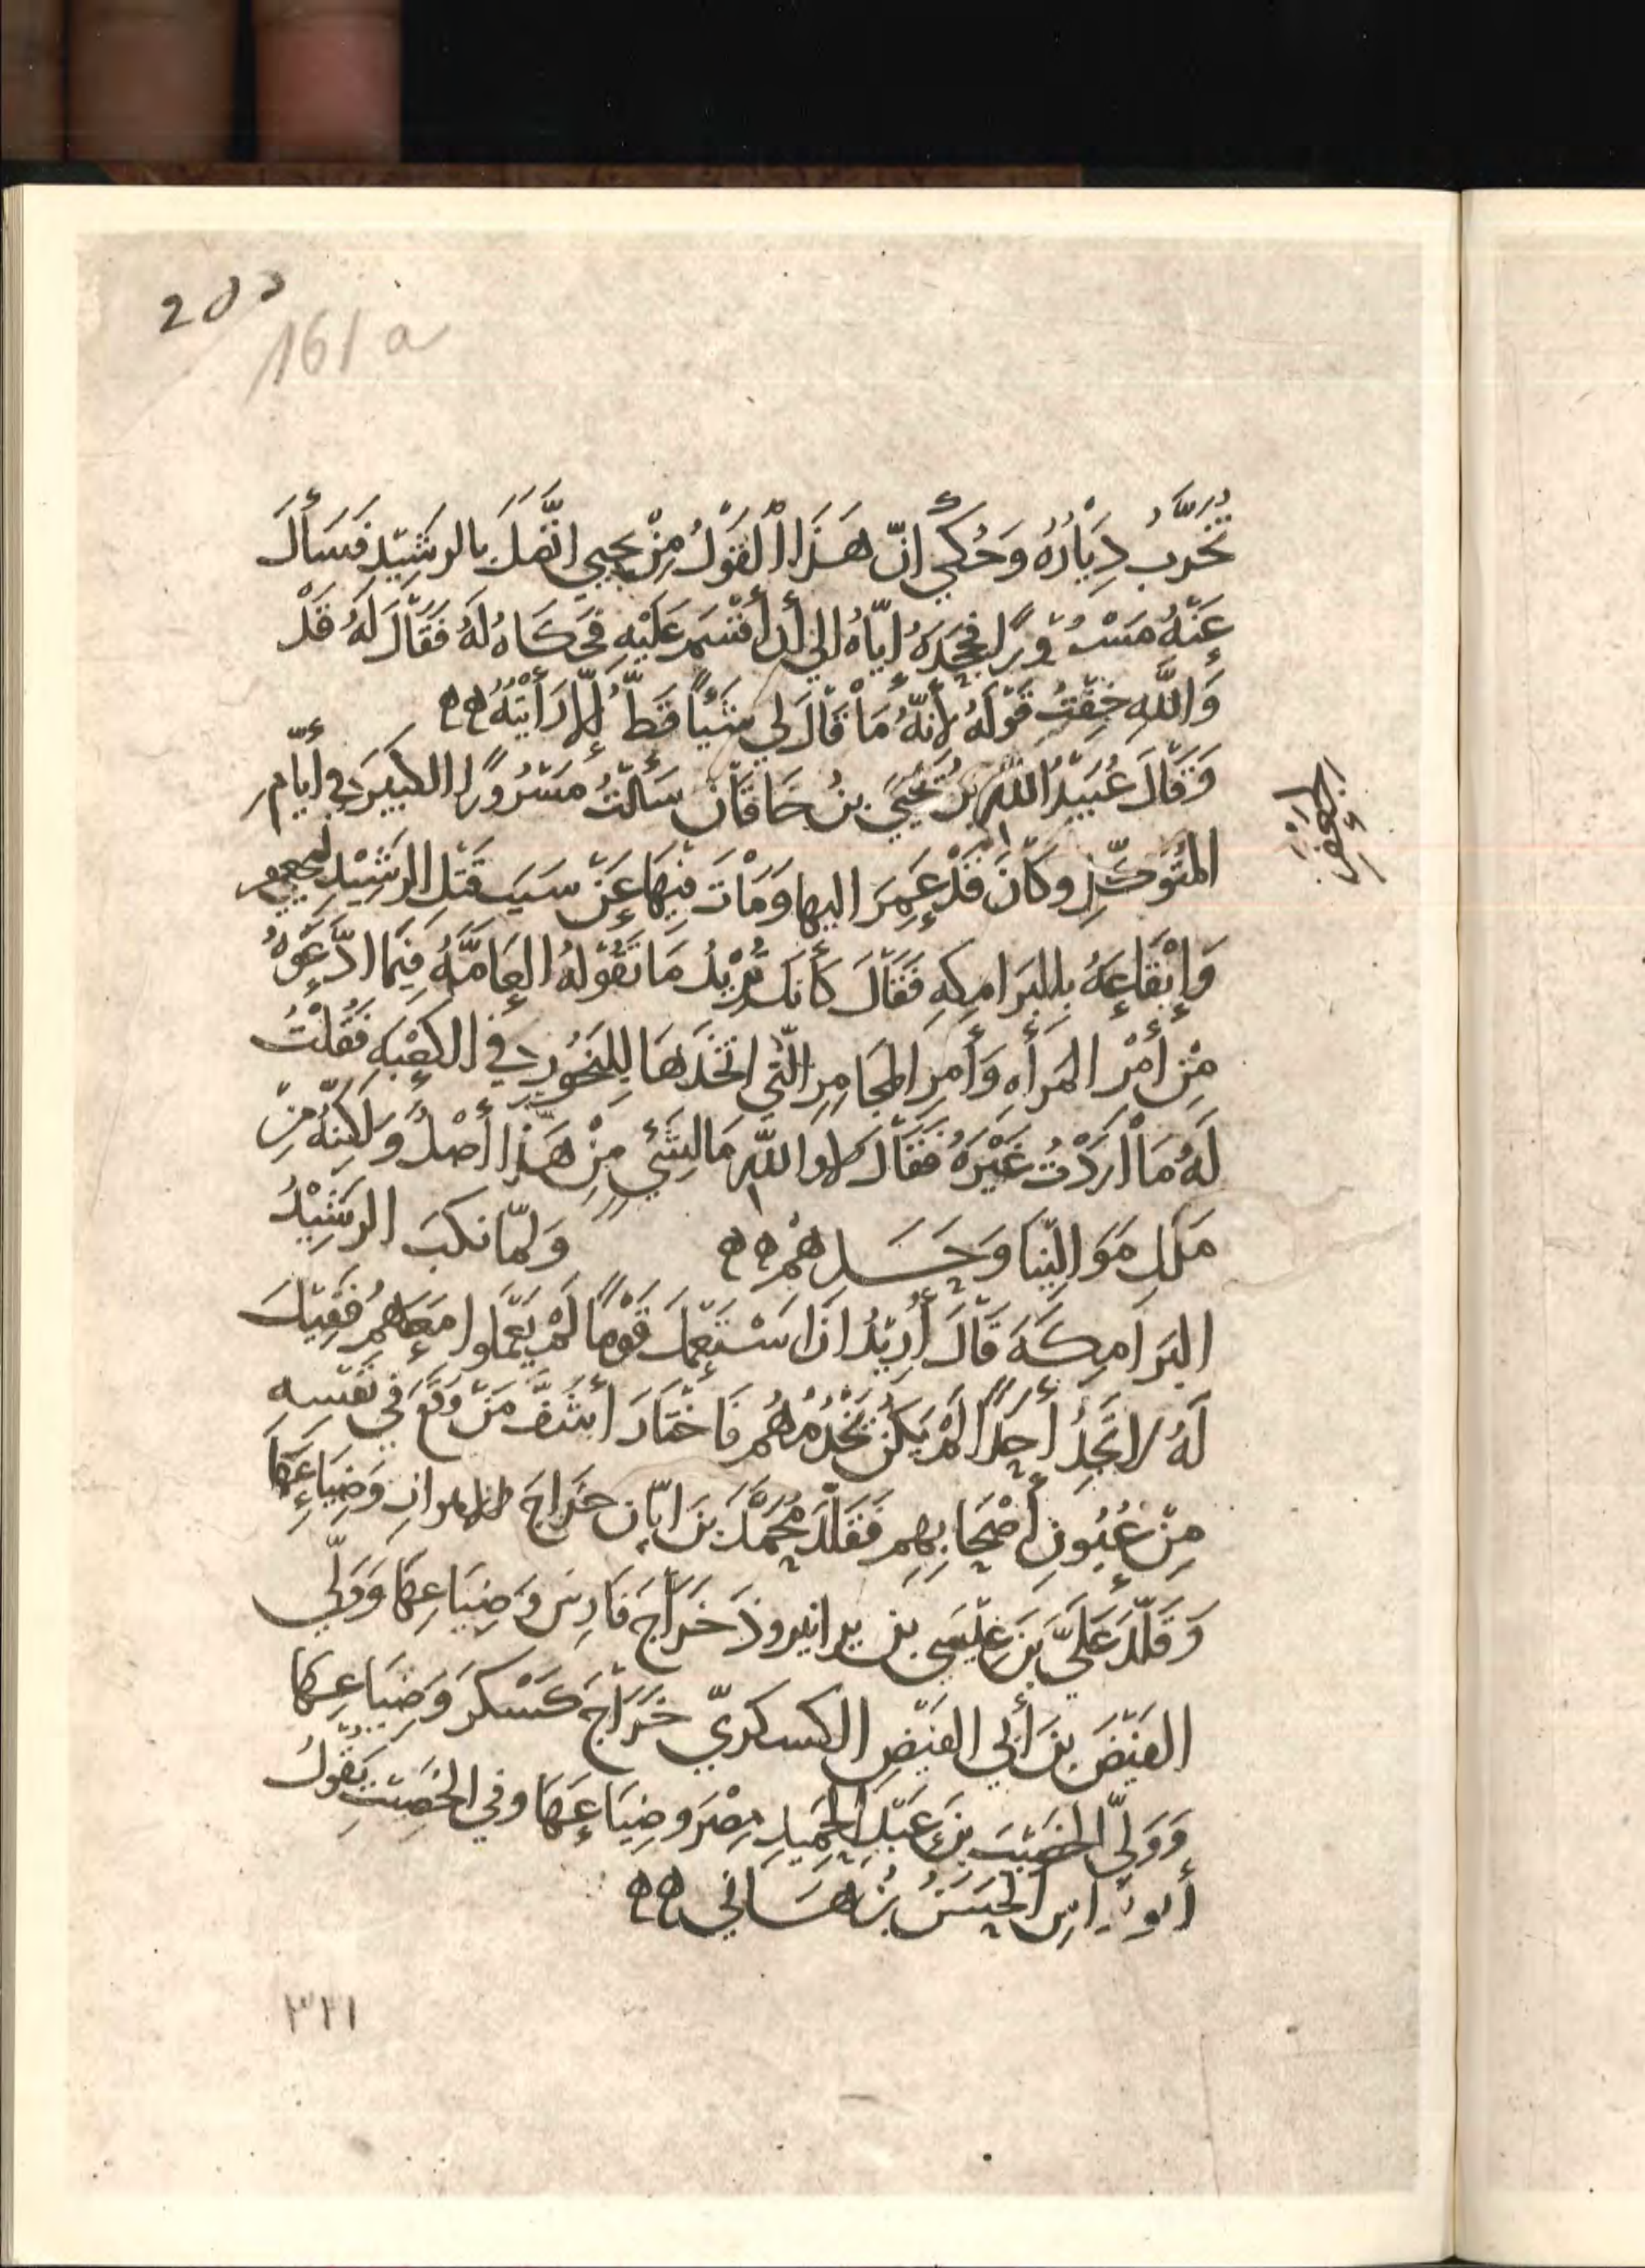 161 a
تُخَرَّبُ دِيَارُهُ وَحُكِيَ انّ هَذَا الْقَوْلُ مِنْ يحيي اتَّصَلَ بالرشِيْدِ فَسَأَلَ
عَنْهُ مَسْرُوْرًا فجحَدَهُ إيّاهُ الي أن أقْسَمَ عَلَيْهِ فَحَكَاهُ لَهُ فَقَالَ لَهُ قَدْ
وَاللّهِ خِفْتُ قَوْلَهُ لأنّهُ مَا قَالَ لِي شَيْئًا قَطُّ إلّا رَأَيْتُهُ هه
وَقَالَ عُبَيْدُ اللّهِ بنُ يَحْيَي بنُ خَاقَانَ سَألْتُ مَسْرُوْرًا الكَبِيْرَ في أيّامِ
المُتَوَكِّلِ وكَانَ قَدْ عَمِرَ اليها وَمَاتَ فِيْهَا عَنْ سَبَبِ قَتْلِ الرشِيْدِ لجعفر
الجعفر
وَإيْقَاعِهِ بِالبَرَامِكِهِ فَقَالَ كَأنكَ تُرِيْدُ مَا تَقُوْلُهُ العَامَّهُ فِيْمَا ادَّعَوْهُ
مِنْ أَمْرِ المَرأَهِ وَأَمرِ المجَامِرِ الّتي اتّخَذَهَا لِلبَخُوْرِ في الكَعْبَهِ فَقُلْتُ
لَهُ مَا ارَدْتُ غَيْرَهُ فَقَالَ لا واللّهِ مَا لِشَئٍ مِنْ هَذا أَصْلٌ وَلَكِنّهُ مِنْ
مَلَلِ مَوَالِيْنَا وَحَسَدِهِمْ هه ولمّا نكبَ الرشِيْدُ
البَرَامِكَهَ قَالَ أُرِيْدُ ان اسْتَعْمِلَ قَوْمًا لَمْ يَعْمَلوا مَعَهُمْ فَقِيْلَ
لَهُ لا تَجِدُ أحَدًا لَمْ يَكُنْ يَخْدُمُهُم فَاخْتَارَ أَشَفَّ مَنْ وَقَعَ في نَفْسِهِ
مِنْ عُيُونِ أَصْحَابِهِم فَقَلَّدَ مُحَمَّدَ بنَ ابّانَ خَرَاجَ الاهواز وَضِيَاعِهَا
وَقَلَّدَ عَلَيَّ بنَ عِيْسَى بن يزدانيروذ خَرَاجَ فَارِسَ وَضِيَاعِهَا وَوَلّي
الفَيْضَ بنَ أبي الفَيْضِ الكسكريّ خَرَاجَ كَسْكَرَ وَضِيَاعِهَا
وَوَلّي الخصَيْبَ بنَ عَبْدِ الحَمِيدِ مِصْرَ وضِيَاعِهَا وفي الخصَيْبِ يَقُولُ
أبو نواس الحَسَنُ بنُ هَانِي هه
٣٢١